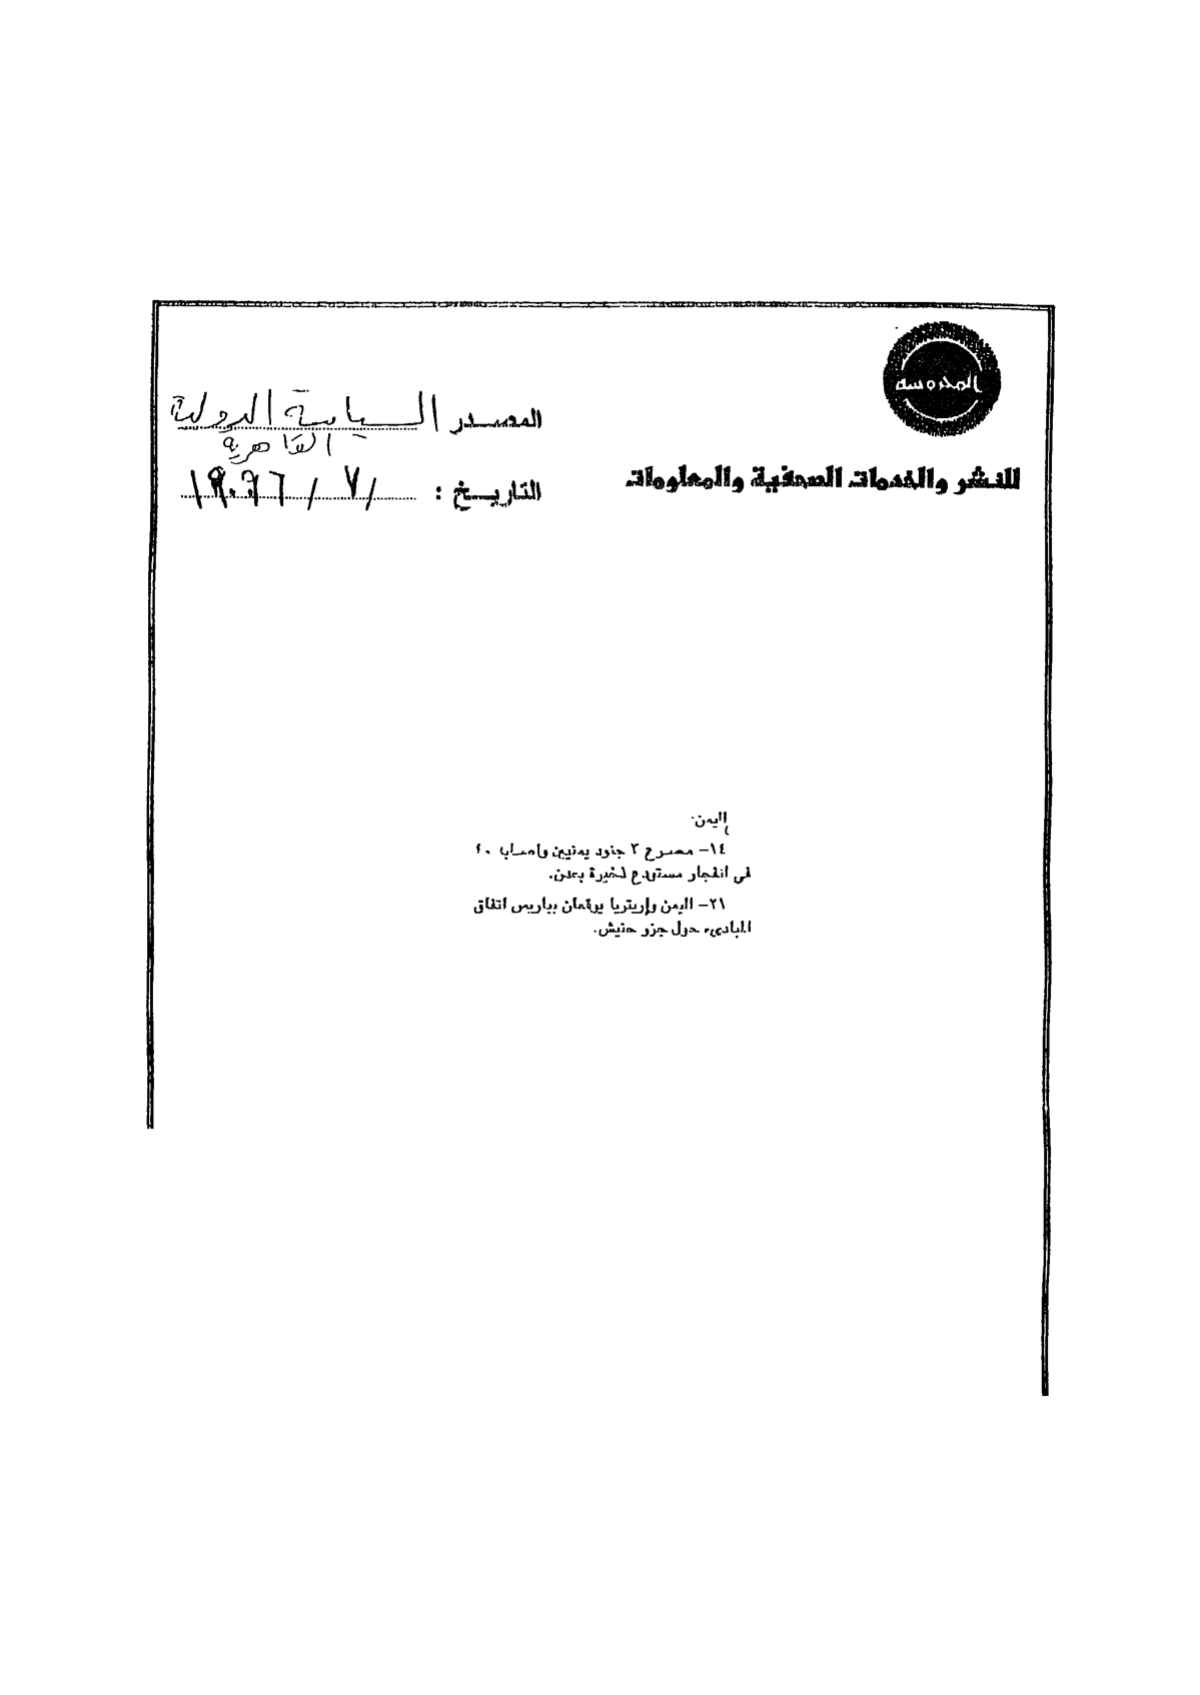 المحروسه
للنشر والخدمات الصحفية والمعلومات
المصدر السياسة الدولية
القاهرية
التاريخ : / ٧ / ١٩٩٦
اليمن
١٤- مصرع ٣ جنود يمنيين واصابا ٢٠
فى انفجار مستودع لخيرة بعدن.
٢١- اليمن وإريتريا يوقعان بباريس اتفاق
المبادىء حول جزو حنيش.